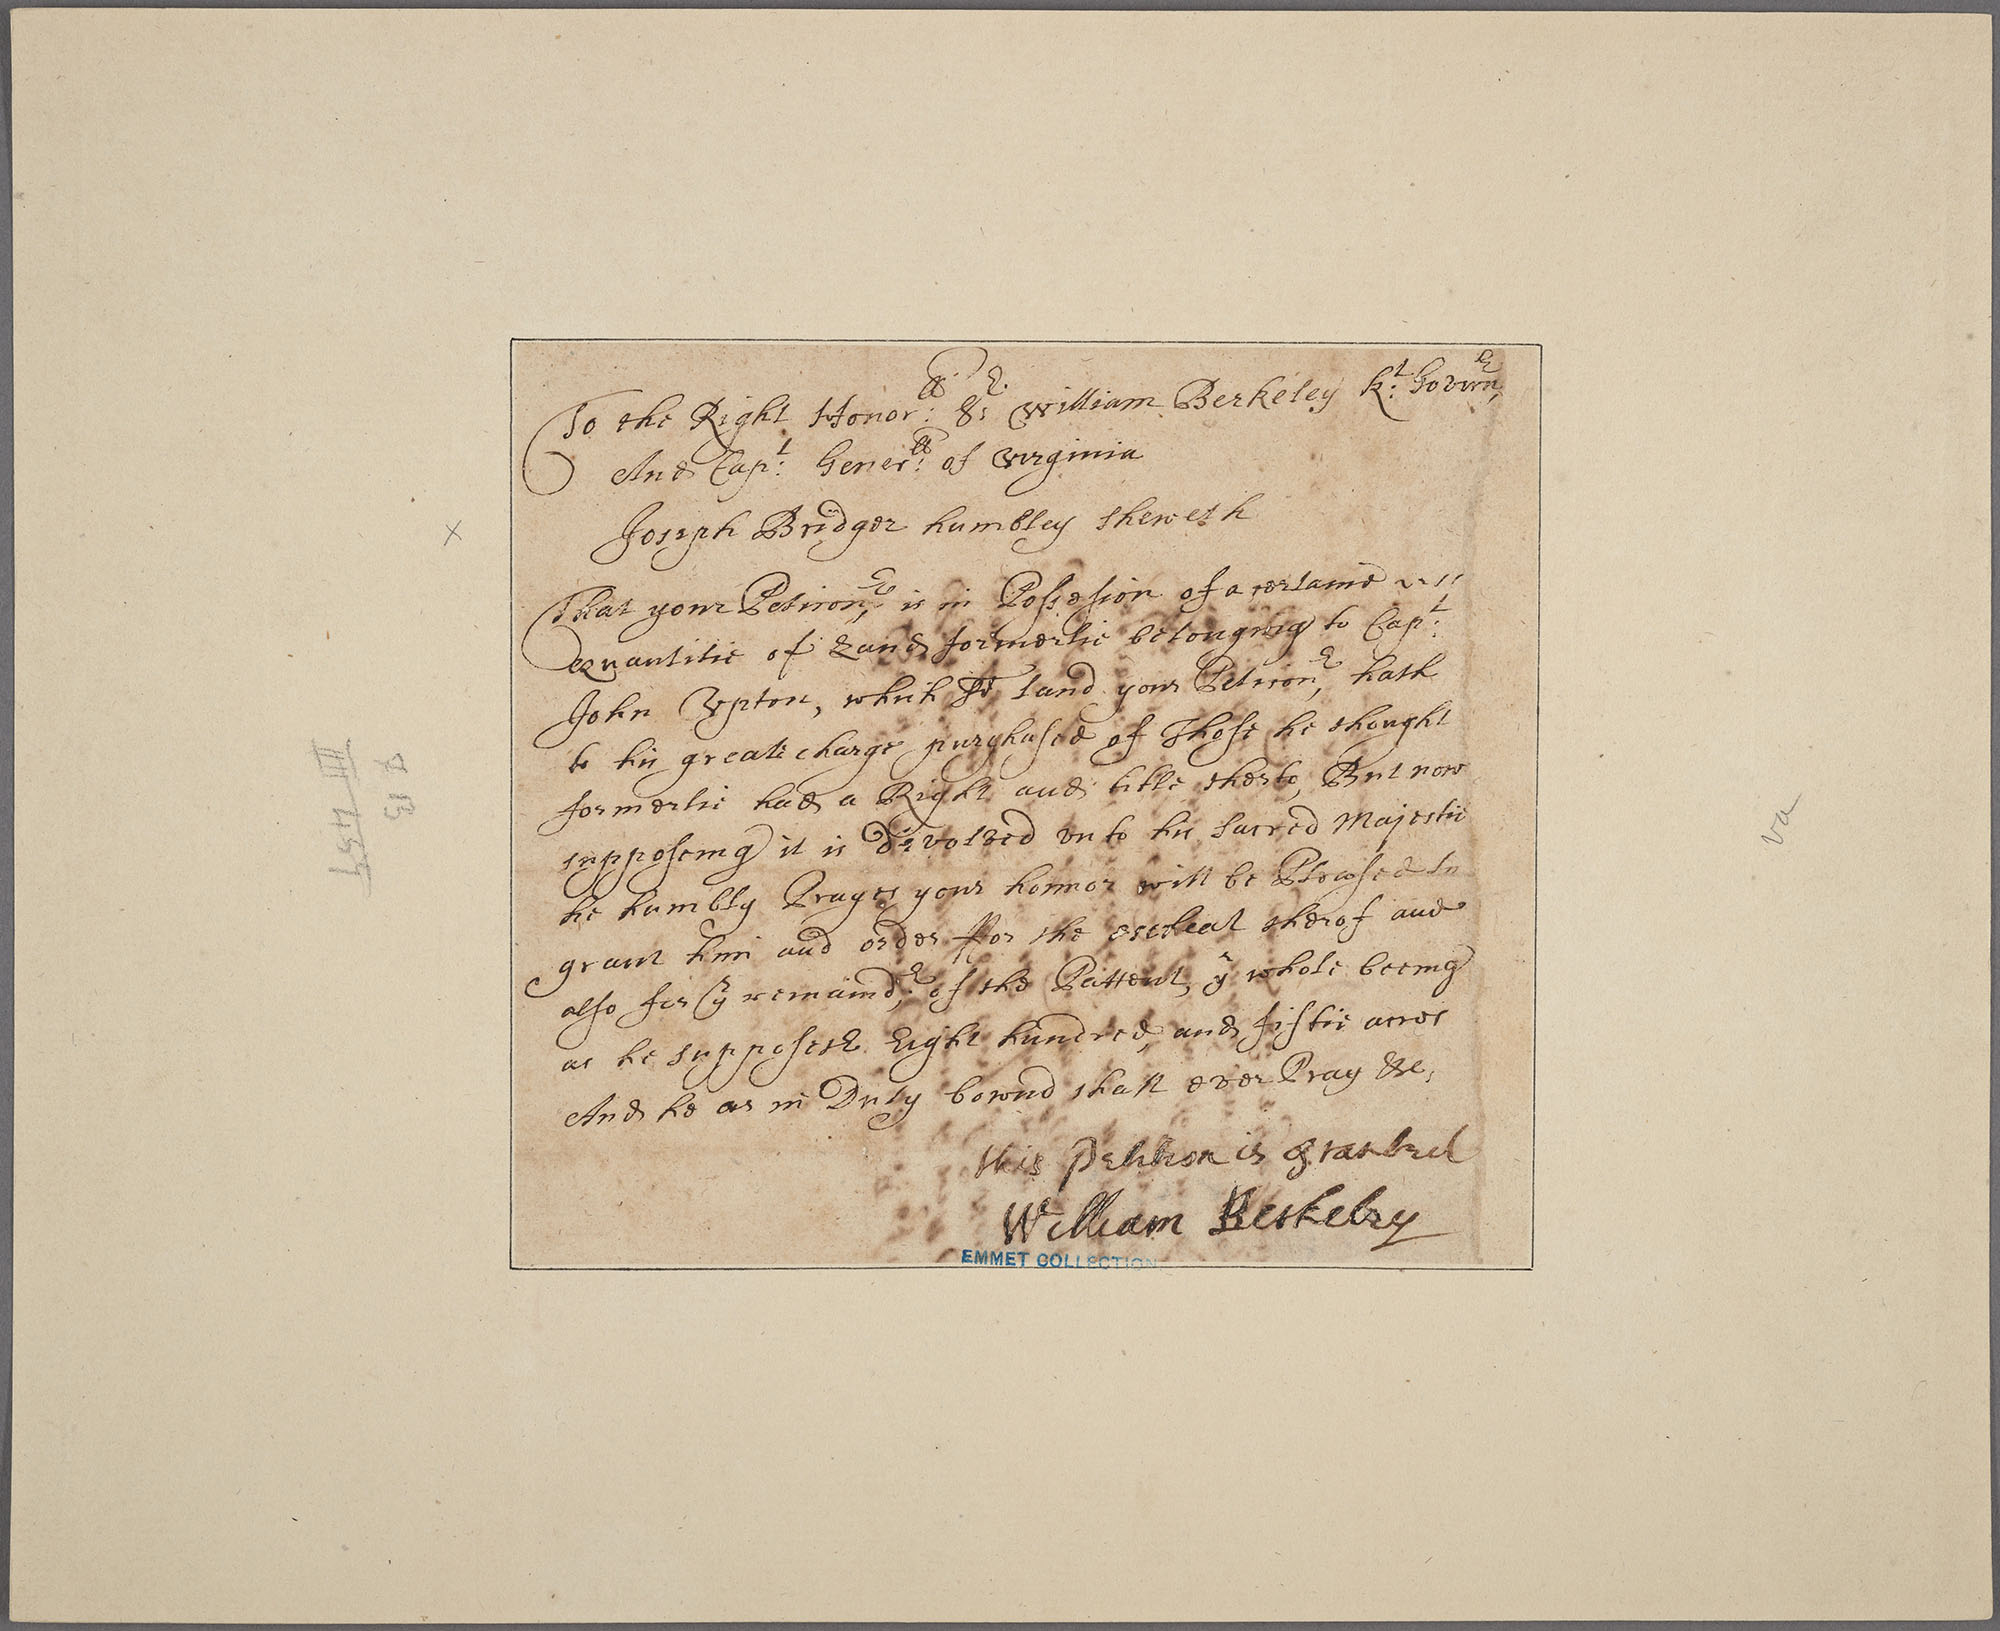 To the Right Honor:ble Sr: William Berkeley K:t Govern,r
And Cap:t Gener:ll of Virginia
Joseph Bridger humbley sheweth
That your Petition,r is in Possession of a certaine
Quantitie of Land formerlie belonging to Cap:t
John Vpton, which sd land your Petition,r hath
to his greate charge purchased of Those he thought
formerlie had a Right and title therto, But now
supposeing it is devolved vnto his Sacred Majestie
he humbly Prayes your honnor will be Pleased to
grant him and order ffor the escheat therof and
also for ye remaind,r of the Pattent, ye whole beeing
as he supposeth Eight hundred, and fiftie acres
And he as in Duty bownd shall ever Pray &c,
this petition is granted
William Berkeley
EMMET COLLECTION
x
va